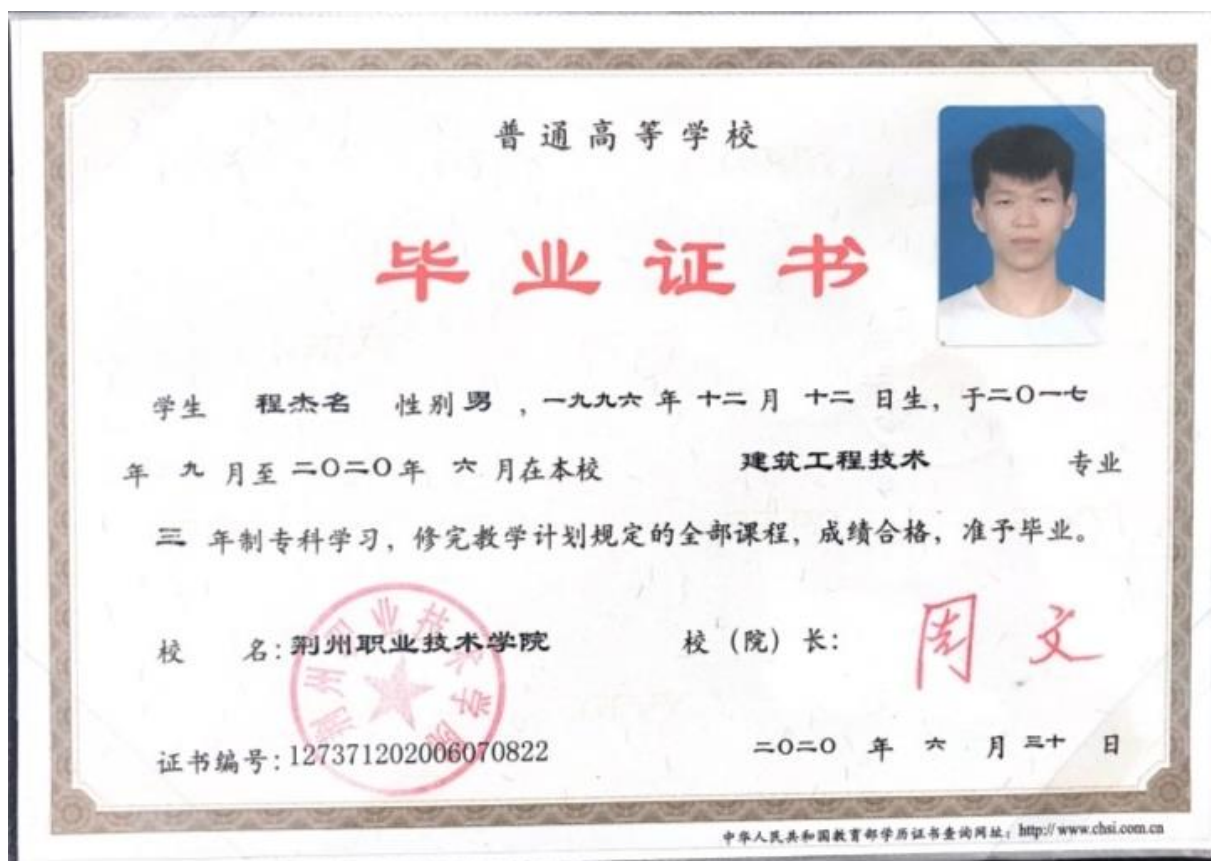 普通高等学校
毕业证书
学生 程杰名 性别 男 ，一九九六 年 十二 月 十二 日生，于二〇一七
年 九 月至 二〇二〇 年 六 月在本校 建筑工程技术 专业
三 年制专科学习，修完教学计划规定的全部课程，成绩合格，准予毕业。
校 名：荆州职业技术学院 校（院）长：周文
荆州职业技术学院
证书编号：127371202006070822 二〇二〇 年 六 月 三十 日
中华人民共和国教育部学历证书查询网址：http://www.chsi.com.cn